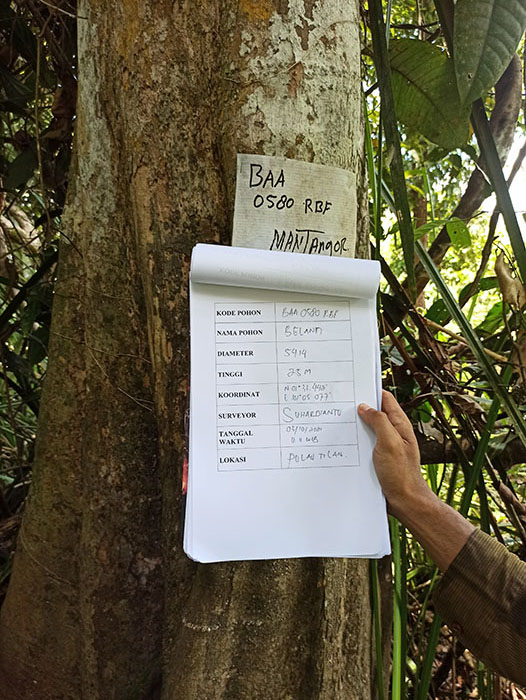 BAA
0580 RBF
MANTangor
KODE POHON BAA 0580 RBF
NAMA POHON BELANTI
DIAMETER 5414
TINGGI 23 M
KOORDINAT
SURVEYOR SUHARDIANTO
TANGGAL
WAKTU WIB
LOKASI PULAU TILAN.